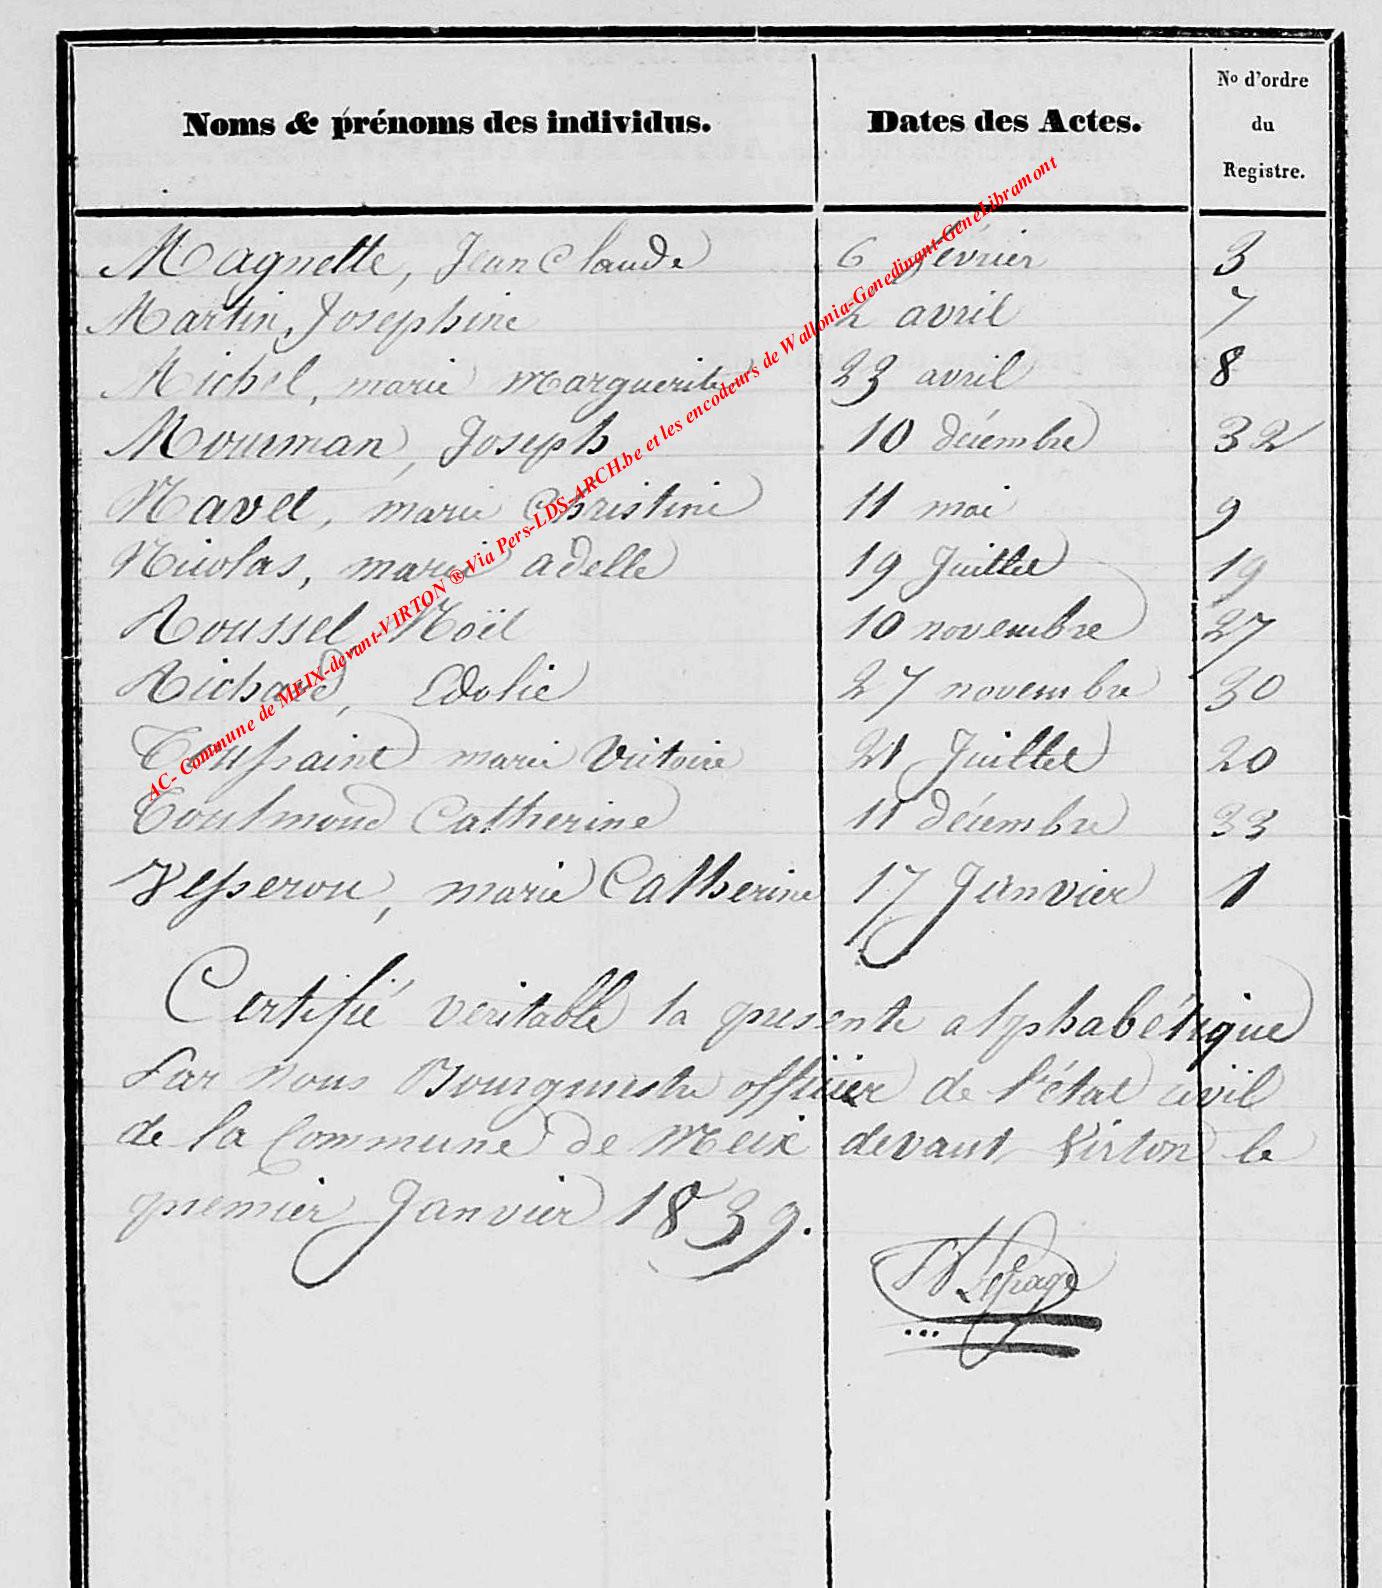 Noms & prénoms des individus. Dates des Actes. No d'ordre du Registre.
Magnette, Jean Claude 6 février 3
Martin, Josephine 2 avril 7
Michel, marie Marguerite 23 avril 8
Mourman, Joseph 10 décembre 32
Navet, marie Christine 11 mai 9
Nicolas, marie adelle 19 Juillet 19
Roussel, Noël 10 novembre 27
Richard, Edolie 27 novembre 30
Toussaint marie Victoire 21 Juillet 20
Toulmond Catherine 11 décembre 33
Vesseron, marie Catherine 17 Janvier 1
Certifié veritable la presente alphabétique
Par nous Bourgmestre officier de l'état civil
de la Commune de Meix devant Virton le
premier Janvier 1839.
Lepage
AC- Commune de MEIX-devant-VIRTON ® Via Pers-LDS-ARCH.be et les encodeurs de Wallonia-Genedinant-GeneLibramont